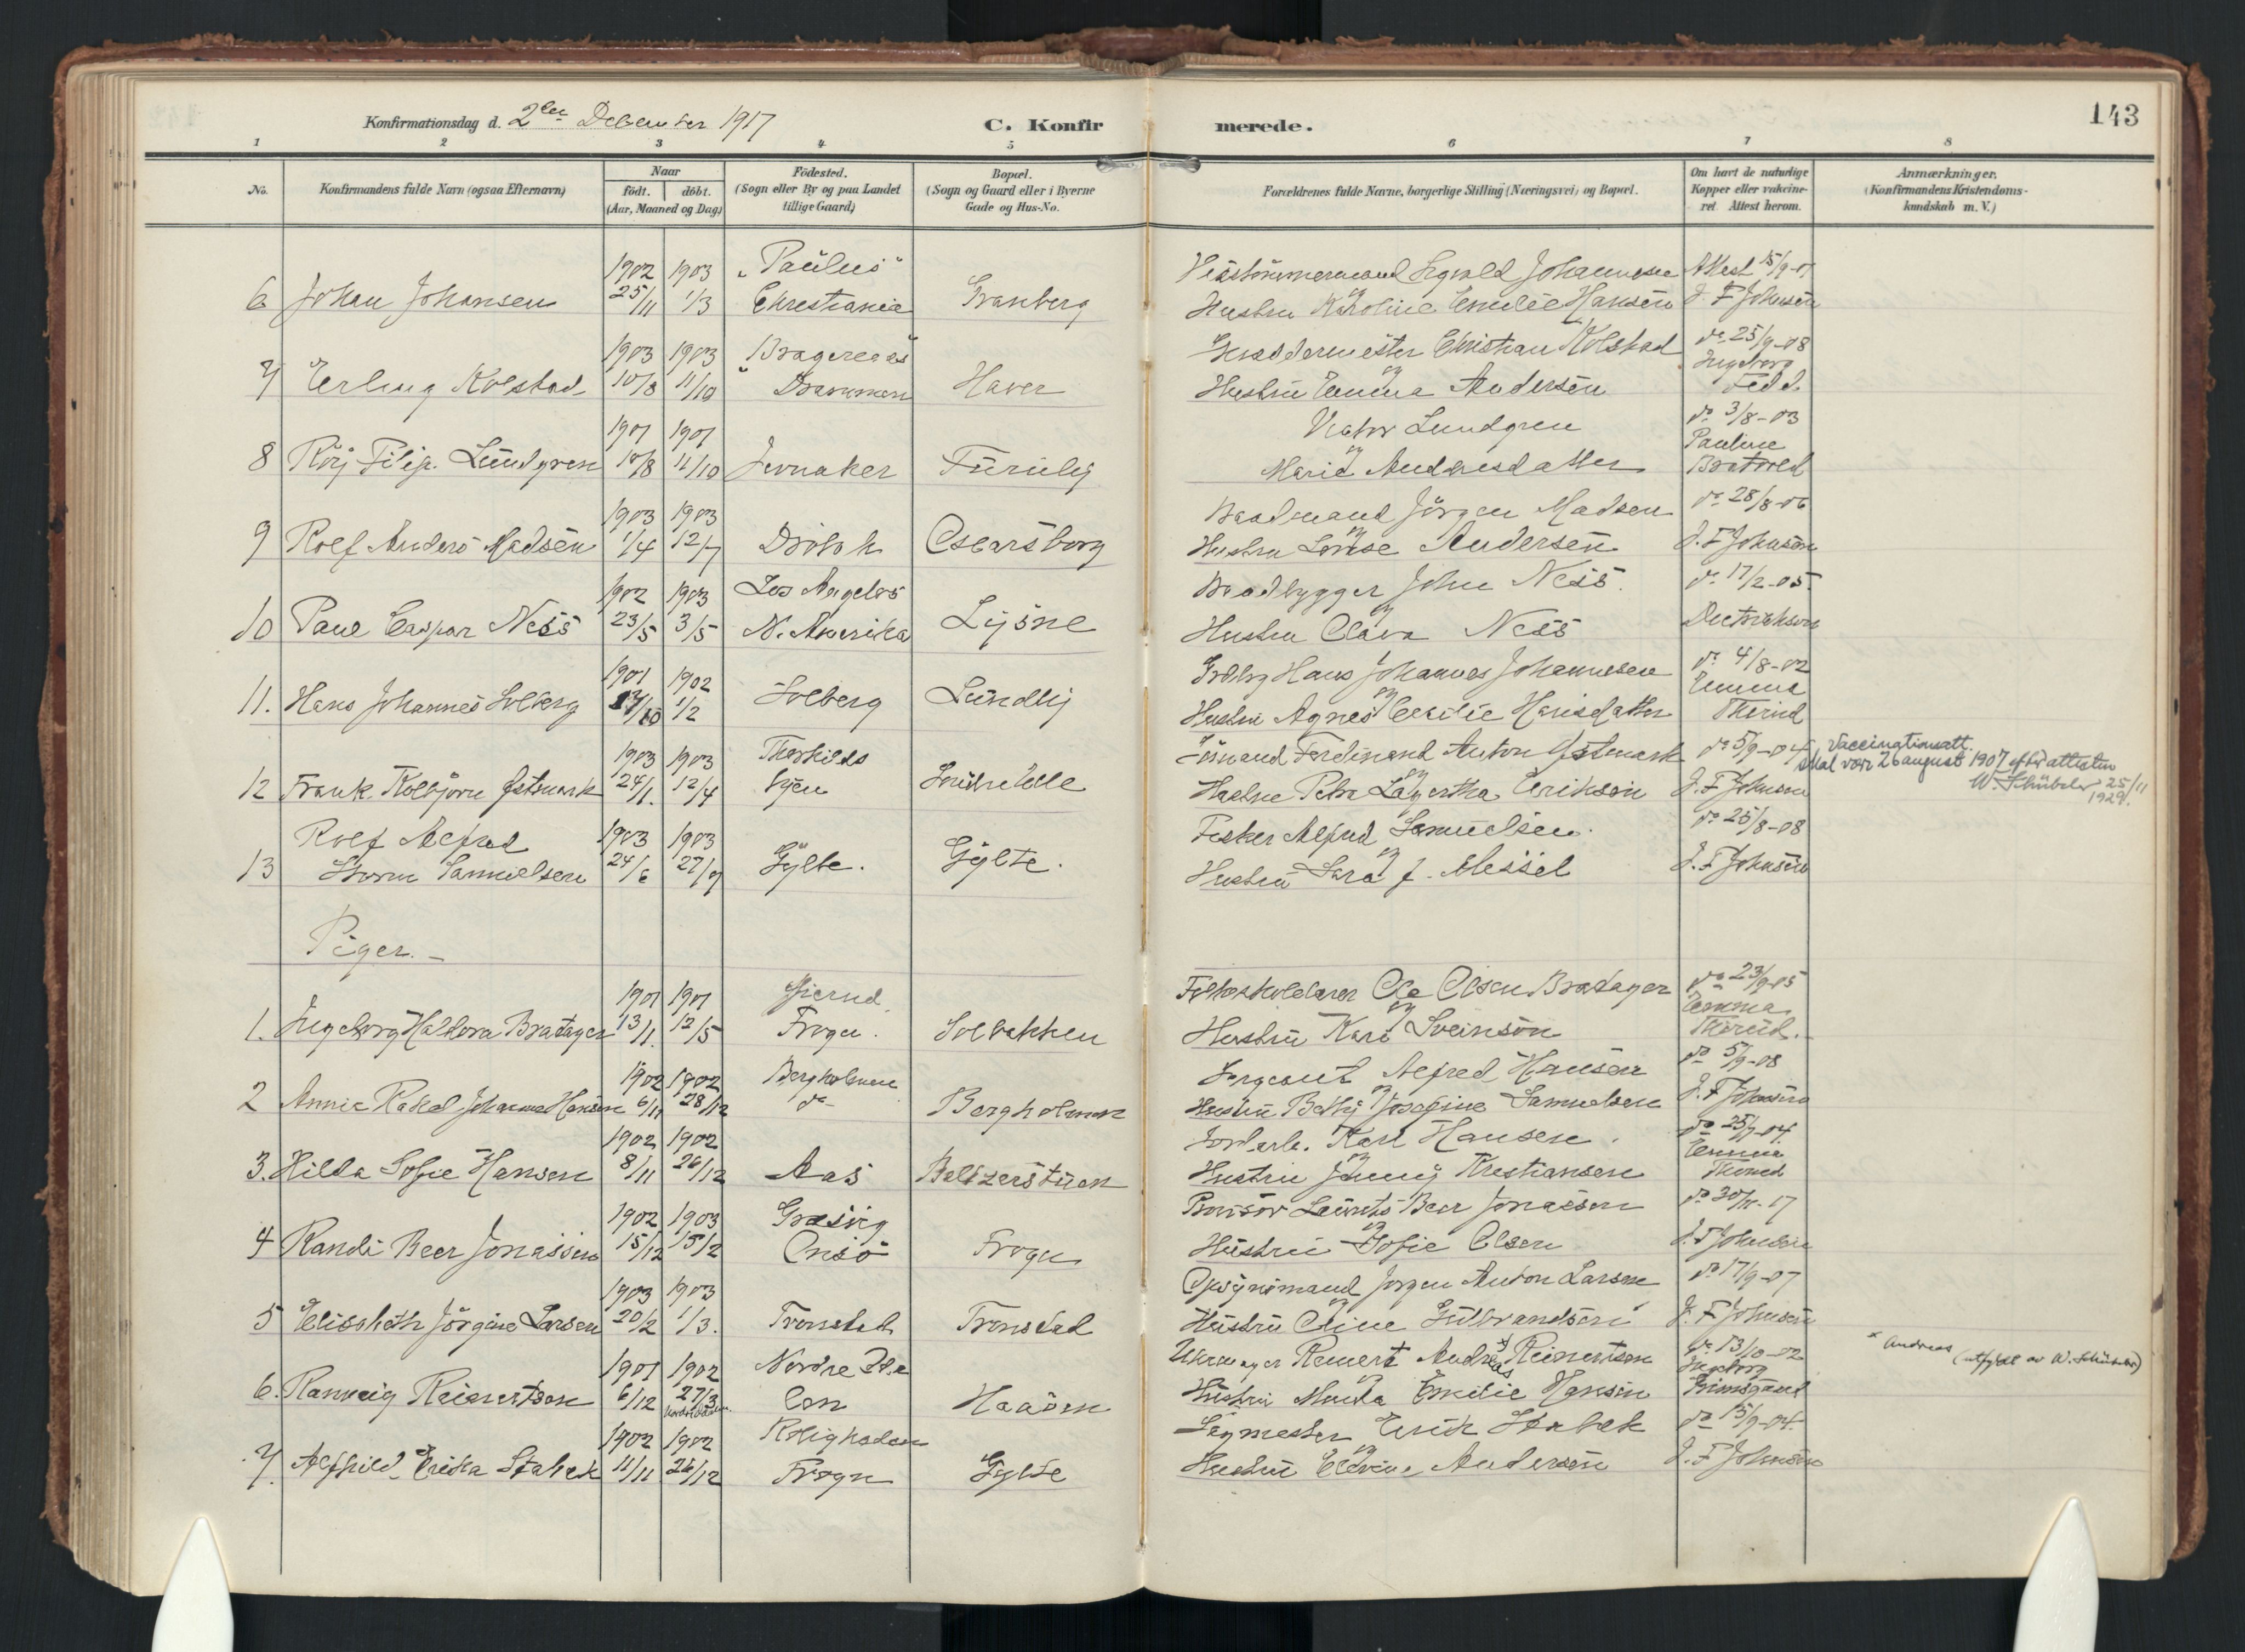 143
Konfirmationsdag d. 2den December 1917
C. Konfirmerede.
1 2 3 4 5 6 7 8
No.
Konfirmandens fulde Navn (ogsaa Efternavn)
Naar
født. døbt.
(Aar, Maaned og Dag)
Födested.
(Sogn eller By og paa Landet
tillige Gaard)
Bopæl.
(Sogn og Gaard eller i Byerne
Gade og Hus-No.
Forældrenes fulde Navne, borgerlige Stilling (Næringsvei) og Bopæl.
Om havt de naturlige
Kopper eller vakcine-
ret. Attest herom.
Anmærkninger.
(Konfirmandens Kristendoms-
kundskab m. V.)
1902 1903 "Paulus" Sigvald Johannesen Attest 15/9-
6 Johan Johansen 25/11 1/3 Christiania Granberg Hustru Karoline Emilie Hansen J. F Johnsen
1903 1903 "Bragernes" Christian Kolstad do 25/9-08
Ingeborg
7 Erling Kolstad 10/8 11/10 Drammen Haver Hustru Emma Andersen Fedd.
1901 1901 Lundgren do 3/8-03
Pauline
8 Roy Filip. Lundgren 10/8 11/10 Jevnaker Furuly Marie Andresdatter Bratvold
1903 1903 Baadmand Jörgen Madsen do 28/8-06
9 Rolf Anders Madsen 1/4 12/7 Dröbak Oscarsborg Hustru Lovise Andersen J. F Johnsen
1902 1903 Los Angelos Baadbygger John Ness. do 17/2-05.
10 Paul Caspar Ness 23/5 3/5 N. Amerika Lysne Hustru Clara Ness
1901 1902 Hans Johannes Johannesen do 4/8-02
Emma
11. Hans Johannes Solberg 1/2 Solberg Lundby Hustru Agnes Cecilie Hansdatter Thorud
1903 1903 Ferdinand Anton Østmark do 5/9-04 Vaccinationsatt.
skal være 26 august 1907 efter attesten
12 Frank. Kolbjørn Østmark 24/1. 12/4 Hustru Petra Lagertha Eriksen J. F Johnsen W. Schübeler 25/11
1929.
Rolf Alfred 1903 1903 Fisker Alfred Samuelsen. do 25/8-08
13 Storm Samuelsen 24/6 27/9 Gylte. Gylte. Hustru Sara f. Messel J. F Johnsen
Piger.-
1901 1901 Folkeskolelærer Ole Olsen Bratager do 23/9-05
Emma
1. Ingeborg Haldora Bratager 13/1. 12/5 Frogn. Solbakken Hustru Kari Sveinson Thorud.
1902 1902 Bergholmen Sergeant Alfred Hansen do 5/9-08
2 Annie Rakel Johanne Hansen 6/11 28/12 do Bergholmen Hustru Betsy Josefine Samuelsen J. F Johnsen
1902 1902 Jordarb. Karl Hansen. do 25/7-04.
Emma
3. Hilda Sofie Hansen 8/11 26/12 Aas Baltzerstuen Hustru Jenny Kristiansen Thorud
1902 1903 Græsvig Laurits Beer Jonassen do 30/10-17
4 Randi Beer Jonassen 15/12 15/2 Onsö Frogn Hustru Sofie Olsen J. F Johnsen
1903 1903 Opsynsmand Jorgen Anton Larsen do 17/9-07
5 Elisabeth Jörgine Larsen 20/2 1/3. Tronstad Tronstad Hustru Oline Gulbrandsen J. F Johnsen
1901 1902 Nordre Urmager Reinert Andreas x Reinertsen do 13/10-02 x Andreas (utfyldt av W. Schübeler)
Ingeborg
6. Ranveig Reinertsen 6/12 27/3 Haaöen Hustru Emilie Hansen Grimsgaard
1902 1902 Rolighaden Erik Stabek do 15/9-04.
7. Alfhild Erika Stabek 11/11 26/12 Frogn Gylte Hustru Andersen J. F Johnsen